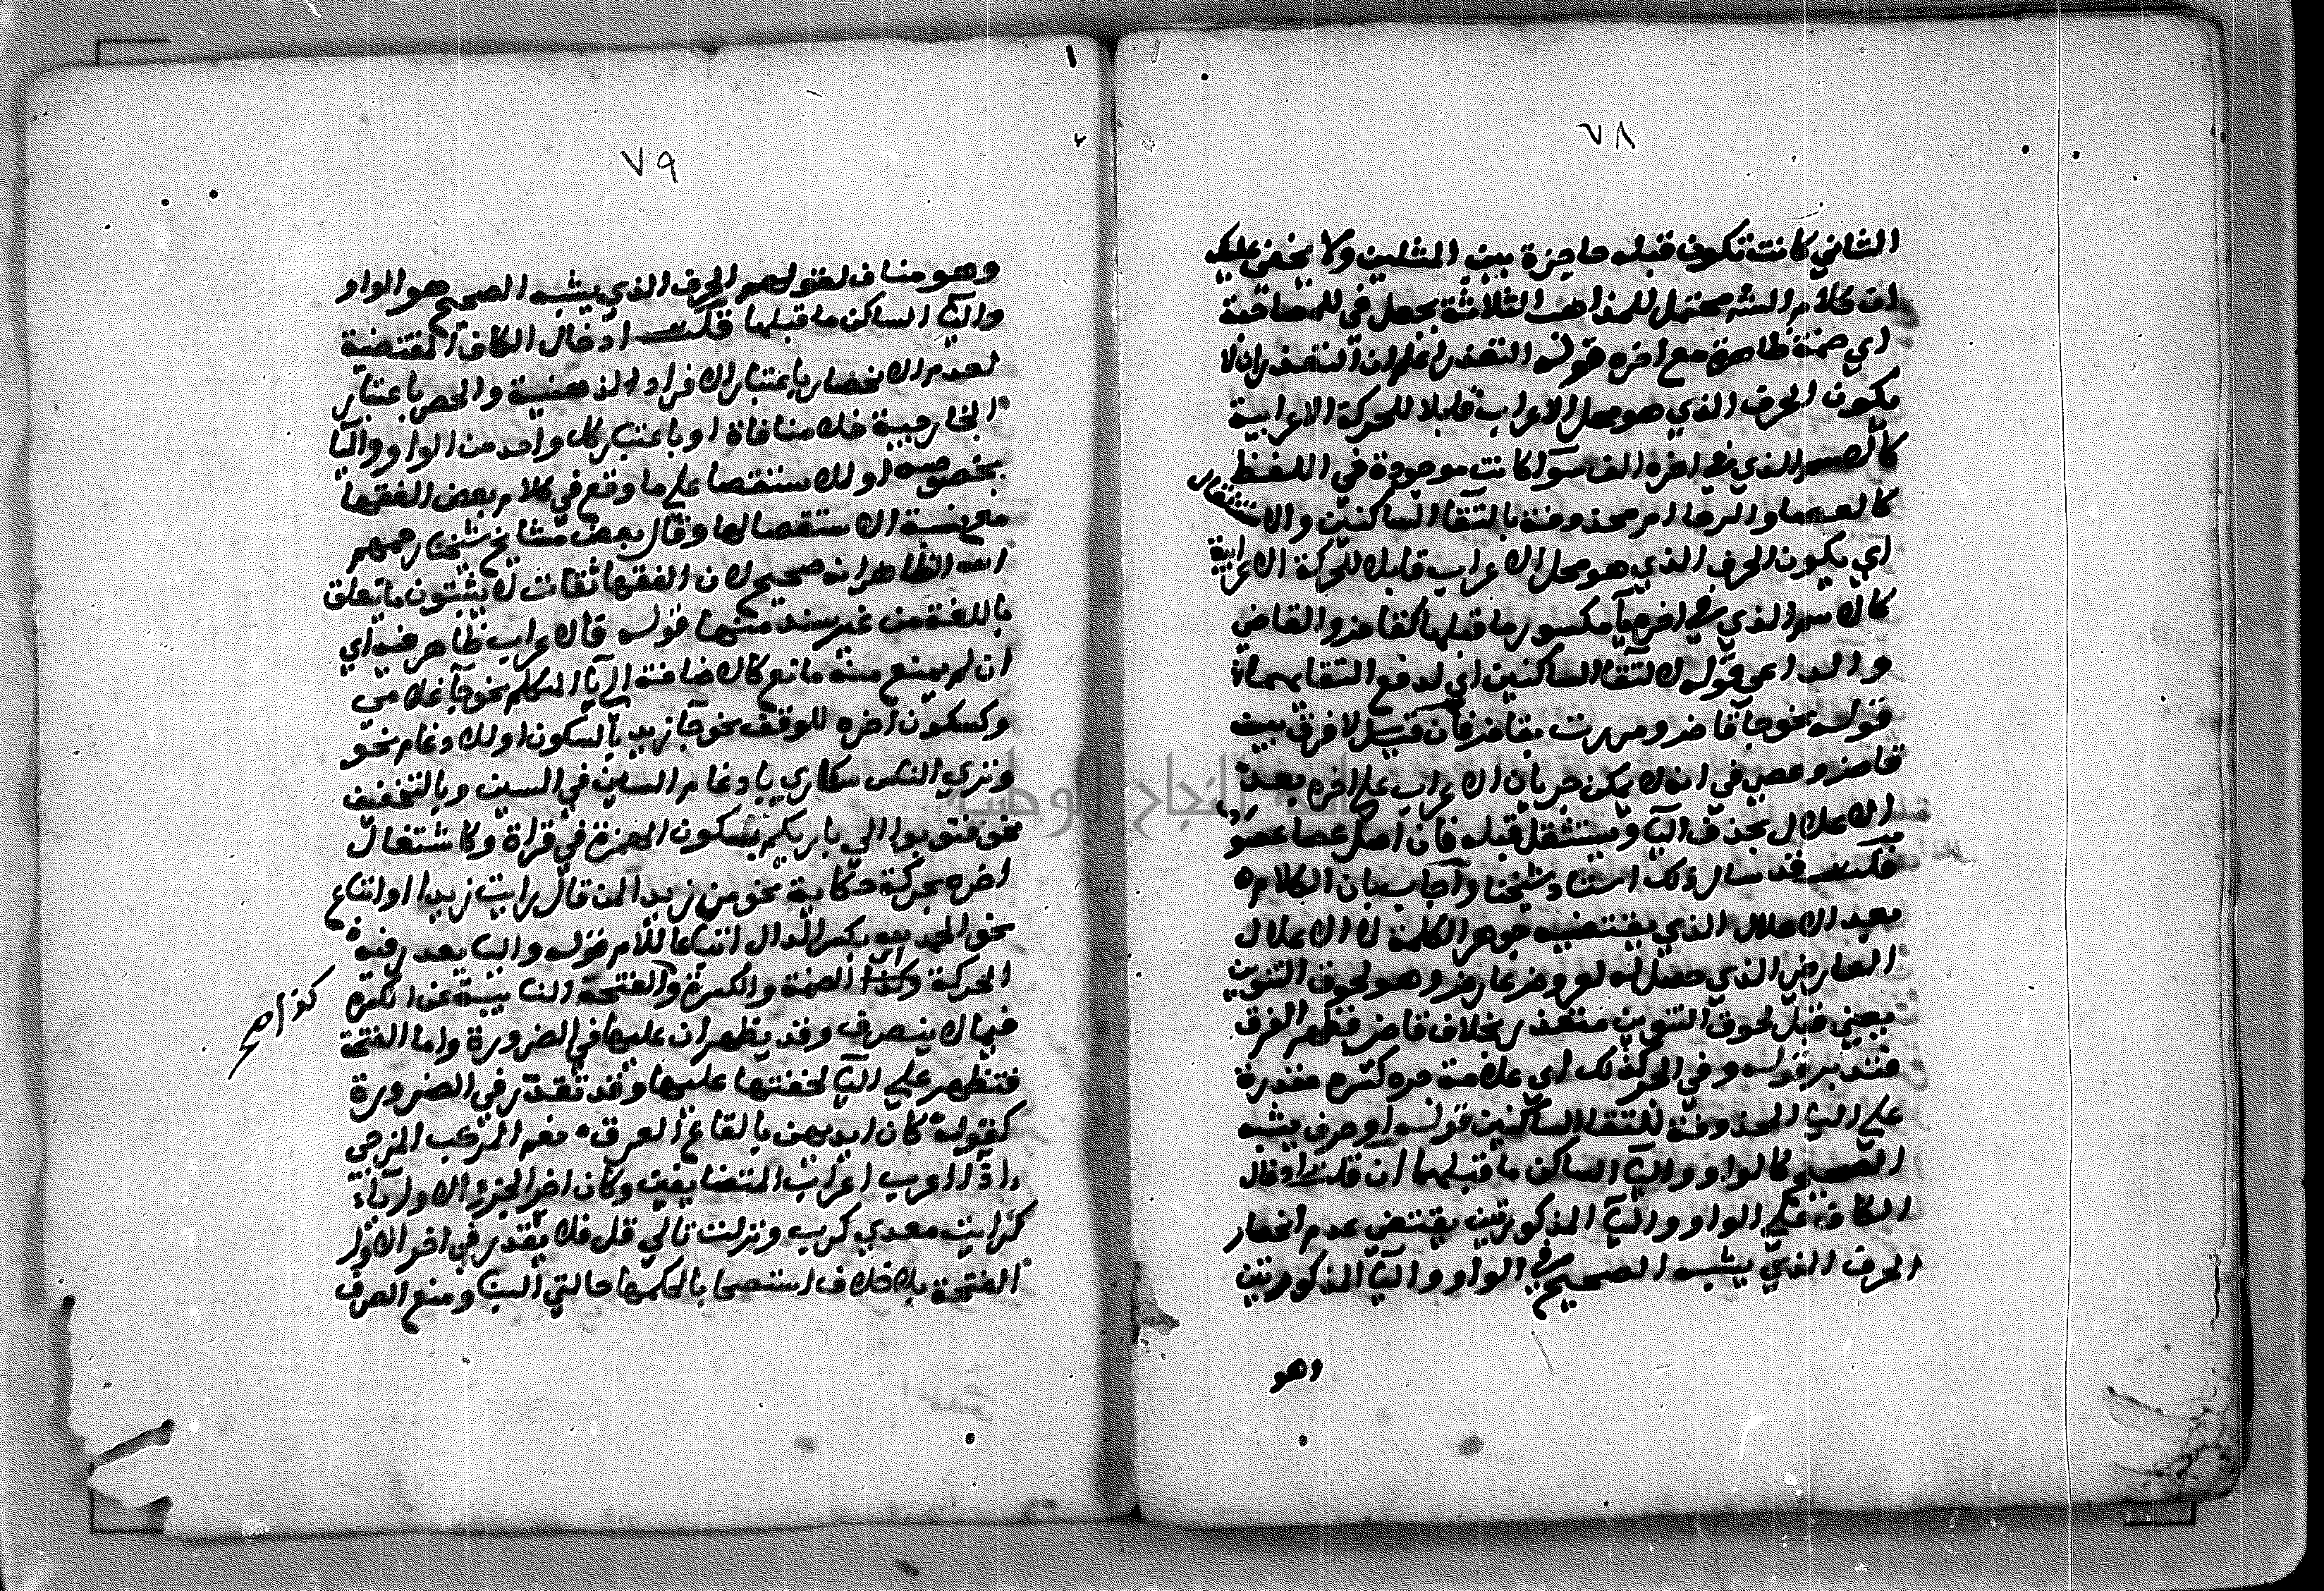 ٧٨
الثاني كانت تكون قبله حاجزة بين المثلين ولا يخفى عليك
ان كلام الشم محتمل للمذاهب الثلاثة يحصل في للمصاحبة
اي ضمة ظاهرة مع اخره قوله التعذر اعلم ان التعذر ان لا
يكون الحرف الذي هو محل الاعراب قابلا للحركة الاعرابية
كالاسم الذي في اخره الف سوآ كانت موجودة في اللفظ
كالعصا والرحا ام محذوفة بالتقا الساكنين والاستثقال
اي يكون الحرف الذي هو محل الاعراب قابلا للحركة الاعرابية
كالاسم الذي في اخره يآ مكسور ما قبلها كقاض والقاضي
والداعي قوله لالتقا الساكنين اي لدفع التقايهما
قوله نحو جآ قاض ومررت بقاض فان قيل لا فرق بين
قاض وعصى في انه لا يمكن جريان الاعراب على اخره بعد
الاعلال بحذف اليآ ويستثقل قبله فان اصل عصا عصو
قلت قد سال ذلك استاد شيخنا واجاب بان الكلام
بعد الاعلال الذي يقتضيه جوهر الكلمة لا الاعلال
العارض الذي حصل له لعروض عارض وهو لحوق التنوين
يعني قبل لحوق التنوين متعذر بخلاف قاض فظهر الفرق
فتدبر قوله وفي الحر كذلك اي علامة جره كسرة مقدرة
على اليا المحذوفة لالتقا الساكنين قوله او حرف يشبه
الصحيح كالواو واليآ الساكن ما قبلهما ان قلت ادخال
الكاف على الواو واليآ المذكورتين يقتضي عدم انحصار
الحرف الذي يشبه الصحيح في الواو واليآ المذكورتين
وهو
٧٩
وهو مناف لقولهم الحرف الذي يشبه الصحيح هو الواو
واليآ الساكن ما قبلها قلت ادخال الكاف المقتضية
لعدم الانحصار باعتبار الافراد الذهنية والحصر باعتبار
الخارجية فلا منافاة او باعتبار كل واحد من الواو واليا
بخصوصه او للاستقصا على ما وقع في كلام بعض الفقها
من نسبة الاستقصا لها وقال بعض مشايخ شيخنا رحمهم
الله الظاهر انه صحيح لان الفقها ثقات لا يثبتون ما تعلق
باللغة من غير سند متنها قوله فالاعراب ظاهر فيه اي
ان لم يمنع منه مانع كالاضافة الى يآ المتكلم نحو جآ غلامي
وكسكون اخره للوقف نحو جآ زيد بالسكون او للادغام نحو
وترى الناس سكارى بادغام السين في السين وبالتخفيف
نحو فتوبوا الى باريكم بسكون الهمزة في قراة وكاشتغال
اخره بحركة حكاية نحو من زيدا لمن قال رايت زيدا او اتباع
نحو الحمد لله بكسر الدال اتباعا للام قوله واليا يعد رفية
الحركة وكذا الضمة والكسرة والفتحة النايبية عن الكسرة
فيما لا ينصرف وقد يظهران عليها في الضرورة واما الفتحة
فتظهر على اليآ لخفتها عليها وقد تقدر في الضرورة
كقوله كان ايديهن بالقاع القرق نعم المركب المزجي
اذا اعرب اعراب المتضايفين وكان اخر الجزؤ الاول يآ
كرايت معدي كرب ونزلت قالي قلا فلا يقدر في اخر الاول
الفتحة بلا خلاف استصحابا لحكمها حالتي البنا ومنع الصرف
كذا صح